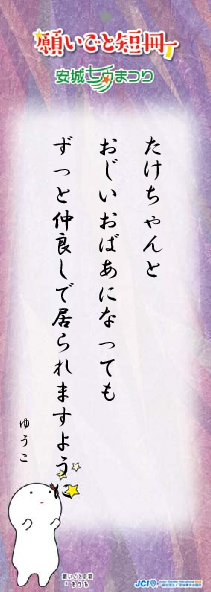 願いごと短冊
安城七夕まつり
たけちゃんと
おじいおばあになっても
ずっと仲良しで居られますように
ゆうこ
JCI